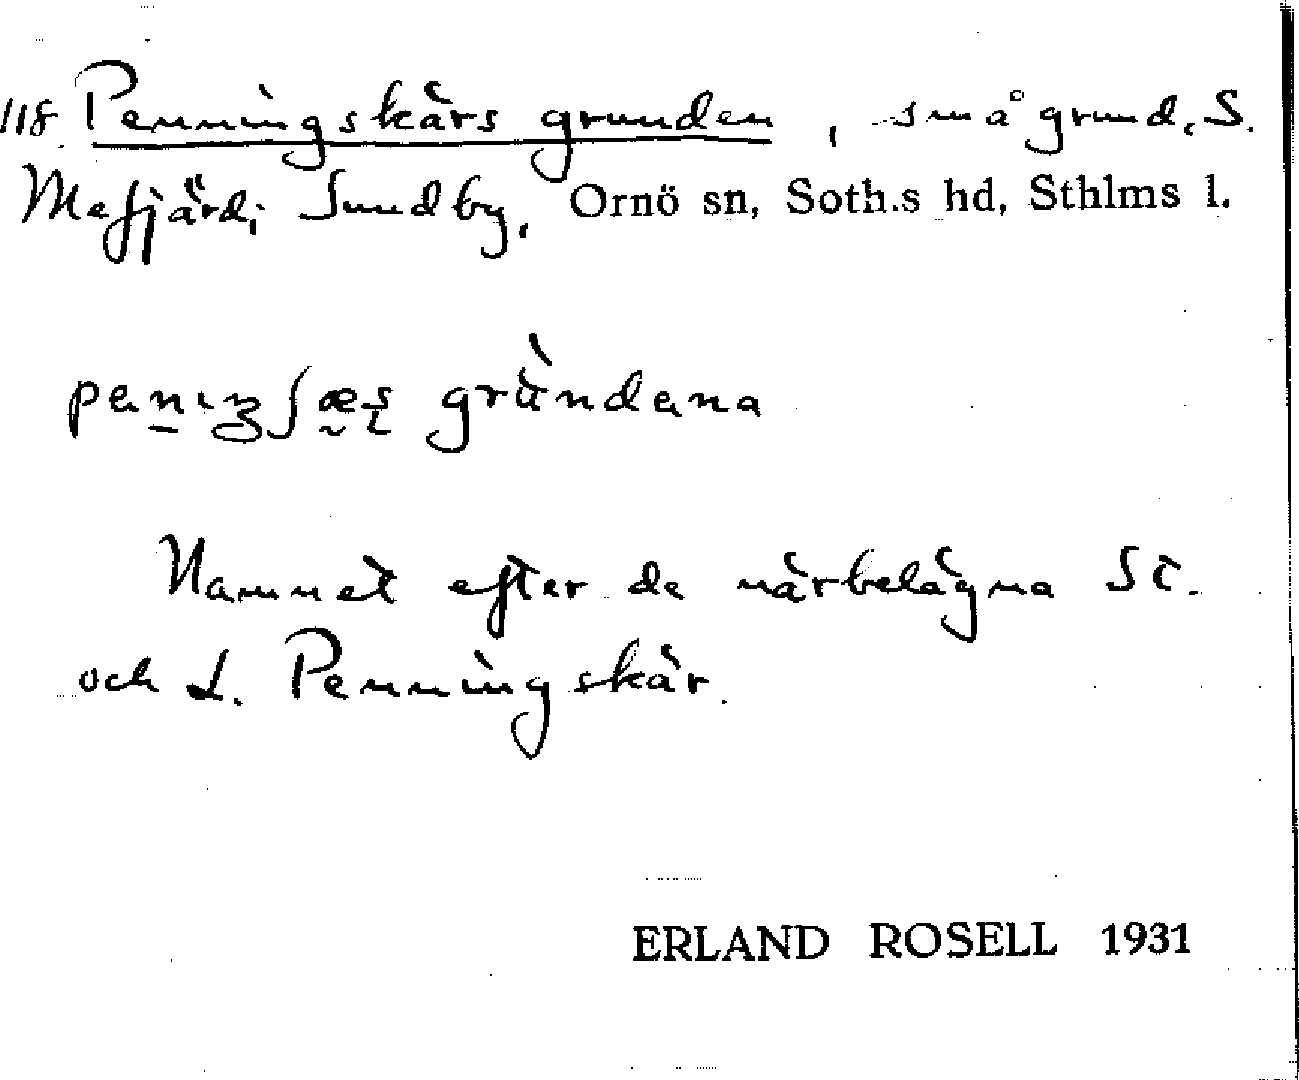 118 Penningskärs grunden, små grund, S.
Mefjärd; Sundby, Ornö sn, Soth.s hd, Sthlms l.
gru̇̀ndena
Namnet efter de närbelägna St.
och L. Penningskär.
ERLAND ROSELL 1931